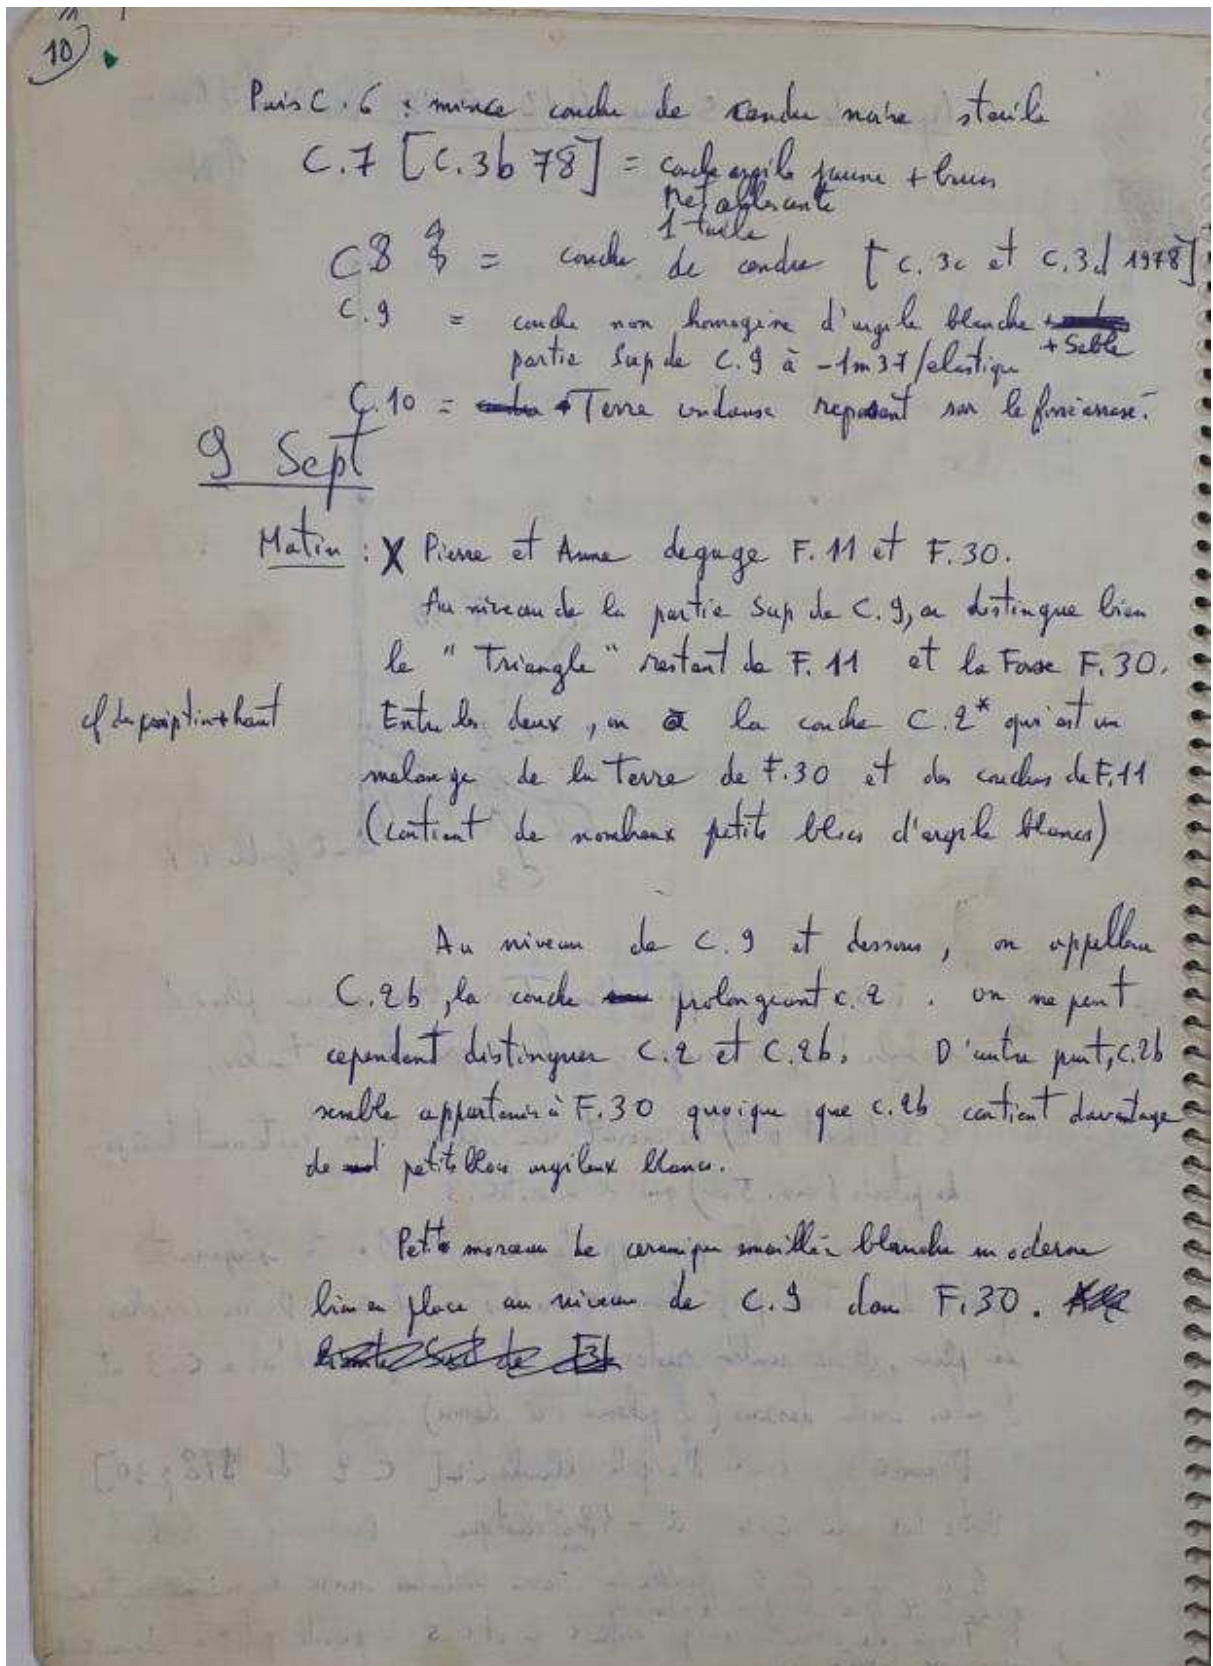 10
Puis C.6 : mince couche de cendre noire sterile
C.7 [C.3b 78] = couche argile jaune + brun
1 tuile
C8 = couche de cendre [C.3c et C.3d 1978]
C.9 = couche non homogène d'argile blanche
+ Sable
partie Sup de C.9 à -1m37/elastique
C.10 = Terre cendreuse reposant sur le
9 Sept
Matin : X Pierre et Anne degage F.11 et F.30.
Au niveau de la partie Sup de C.9, on distingue bien
le "Triangle" restant de F.11 et la Fosse F.30.
cf description + haut
Entre les deux, on a la couche C.2* qui est un
melange de la Terre de F.30 et des couches de F.11
(contient de nombreux petits blocs d'argile blancs)
Au niveau de C.9 et dessous, on appellera
C.2b, la couche prolongeant C.2. on ne peut
cependant distinguer C.2 et C.2b. D'autre part, C.2b
semble appartenir à F.30 quoique que C.2b contient davantage
de petits blocs argileux blancs.
Petit morceau de ceramique emaillée blanche moderne
bien en place au niveau de C.9 dans F.30.